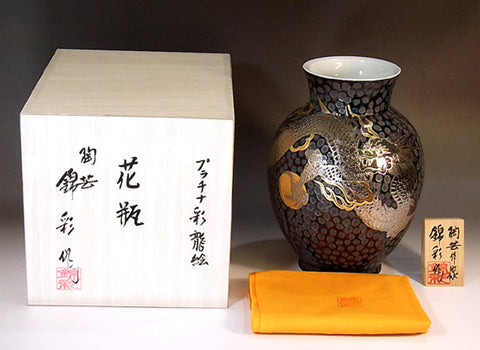 プラチナ彩龍絵
花瓶
陶芸
錦彩作
陶芸作家
錦彩作